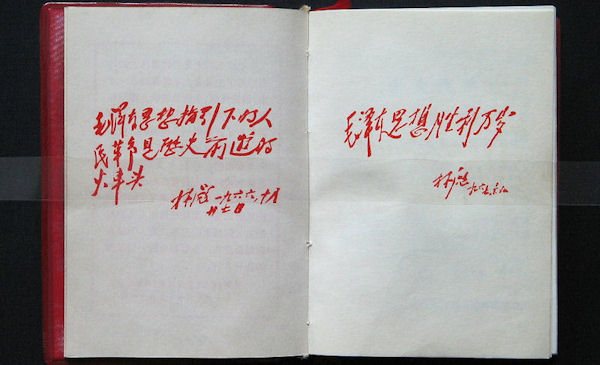 毛泽东思想指引下的人
民革命是历史前进的
火车头
林彪 一九六六、十月
廿七日
毛泽东思想胜利万岁
林彪
一九六七、六、八